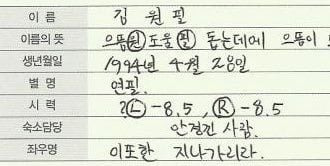 이 름 김 원 필
이름의 뜻 으뜸 원 도울 필 돕는데에 으뜸이
생년월일 1994년 4월 28일
별 명 연필.
시 력 ? L -8.5, R -8.5
숙소담당 안경긴 사람.
좌우명 이또한 지나가리라.